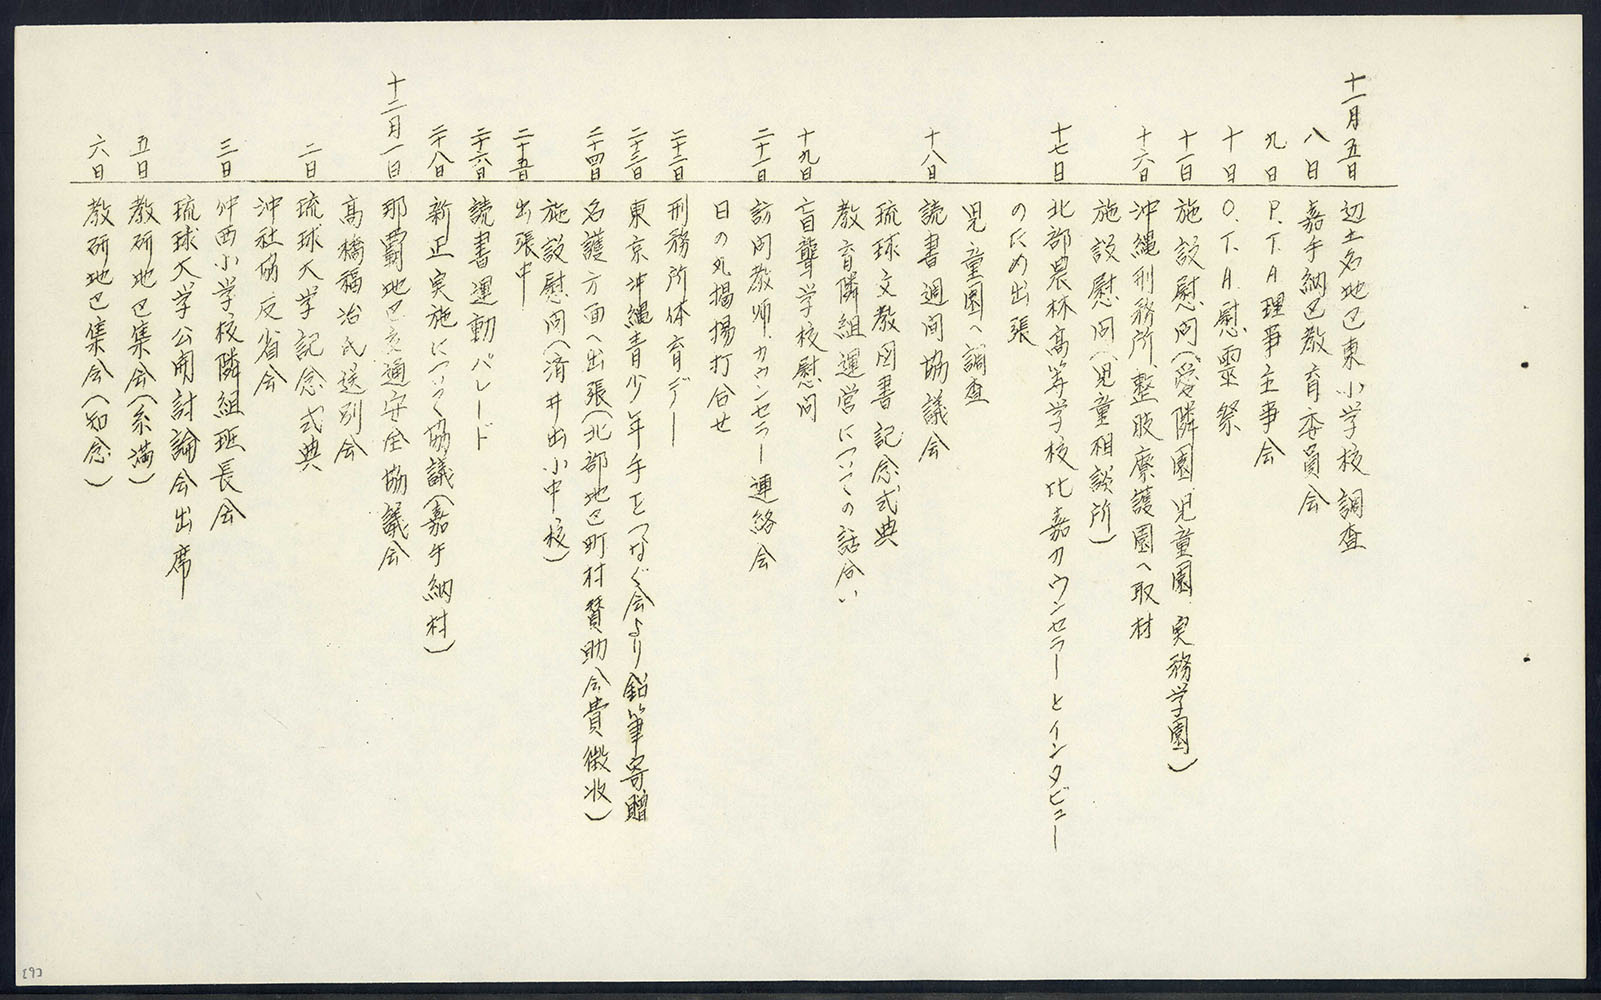 十一月五日 辺土名地区東小学校調査
八日 嘉手納区教育委員会
九日 P.T.A理事主事会
十日 O.T.A.慰霊祭
十一日 施設慰問(愛隣園.児童園.実務学園)
十六日 沖縄刑務所.整肢療護園へ取材
施設慰問(児童相談所)
十七日 北部農林高等学校比嘉カウンセラーとインタビュー
のために出張
児童園へ調査
十八日 読書週間協議会
琉球文教図書記念式典
教育隣組運営についての話合い
十九日 盲聾学校慰問
二十一日 訪問教師.カウンセラー連絡会
日の丸掲揚打合せ
二十二日 刑務所体育デー
二十三日 東京沖縄青少年手をつなぐ会より鉛筆寄贈
二十四日 名護方面へ出張(北部地区町村賛助会費徴收)
施設慰問(済井出小中校)
二十五日 出張中
二十六日 読書運動パレード
二十八日 新正実施について協議(嘉手納村)
十二月一日 那覇地区交通安全協議会
高橋福治氏送別会
二日 琉球大学記念式典
沖社協反省会
三日 仲西小学校隣組班長会
琉球大学公開討論会出席
五日 教研地区集会(糸満)
六日 教研地区集会(知念)
[9]